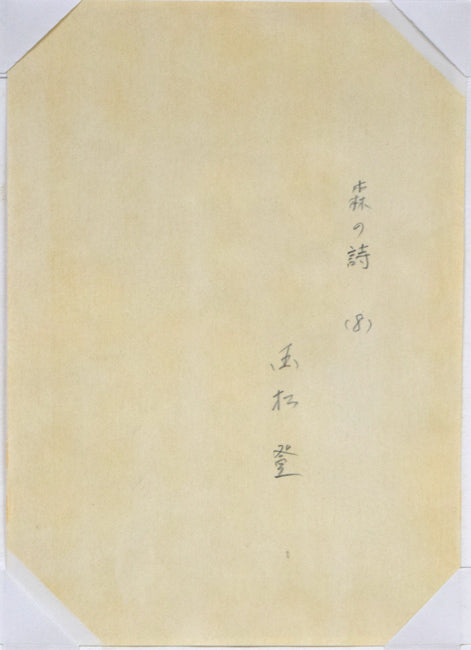 森の詩 (8)
国松 登